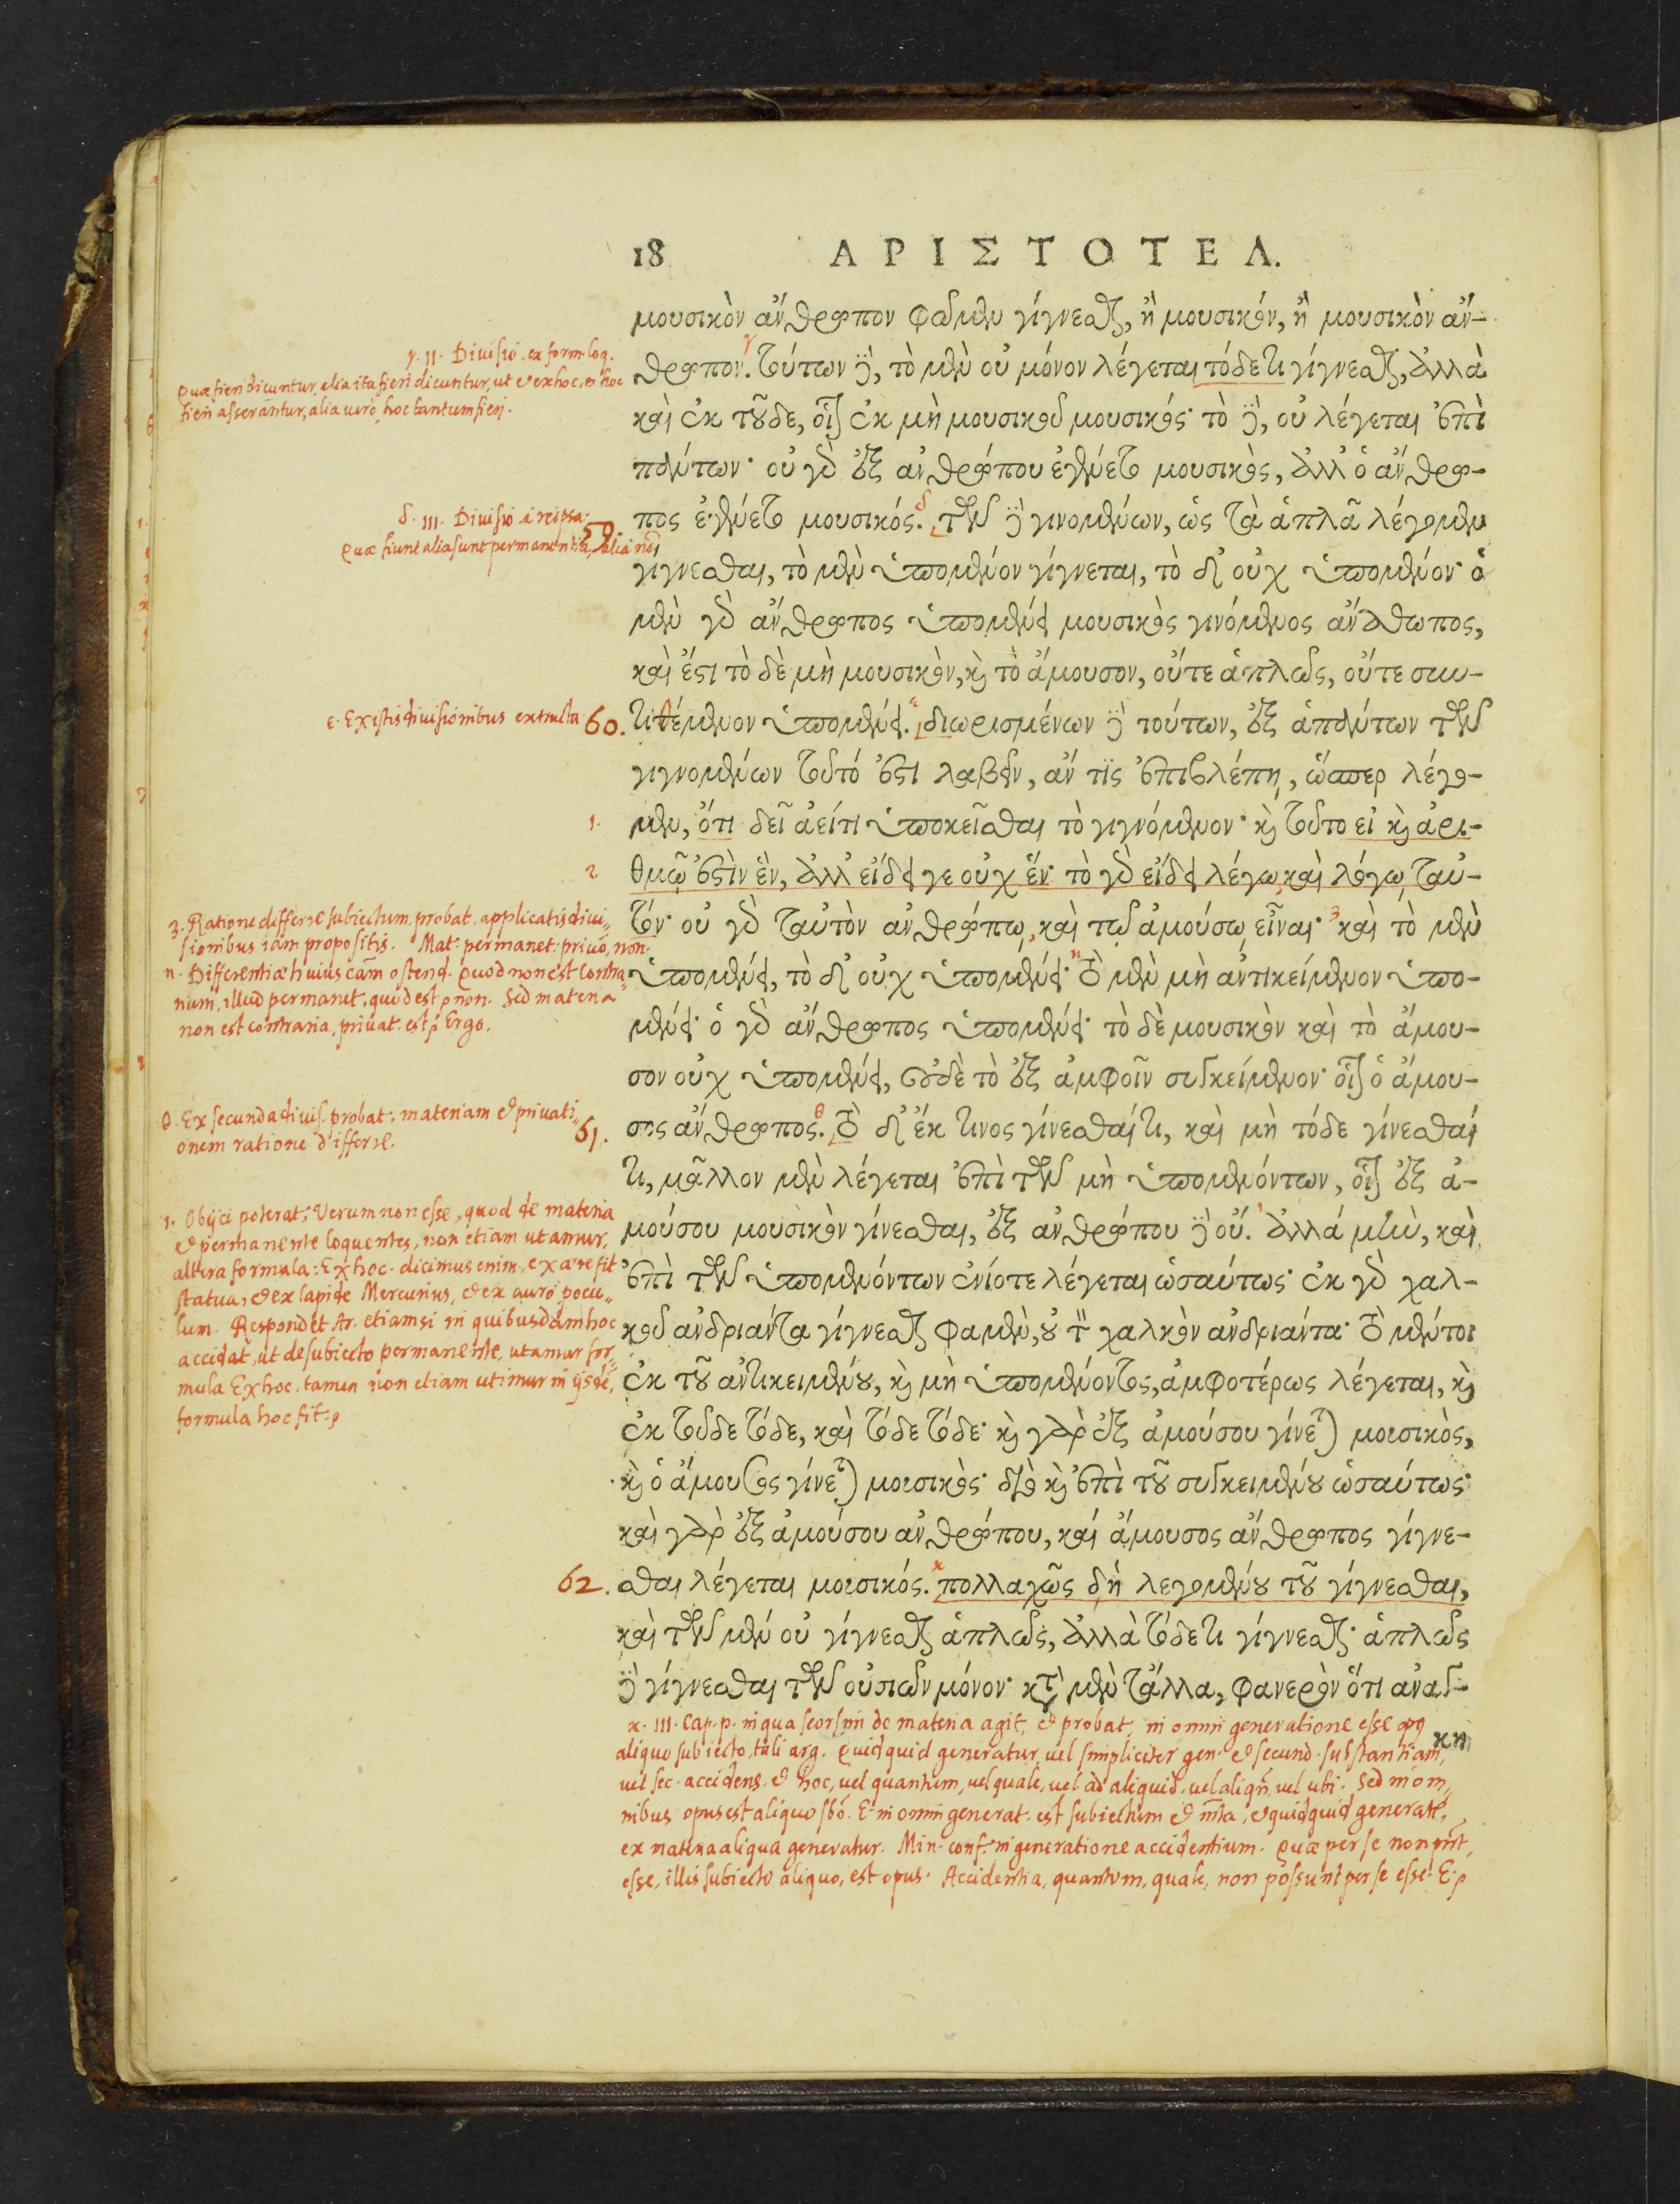 18 ΑΡΙΣΤΟΤΕΛ.
μουσικὸν ἄνθρωπον φαμὲν γίγνεσθαι, ἢ μουσικόν, ἢ μουσικὸν ἄν-
θρωπον. τούτων δὲ, τὸ μὲν οὐ μόνον λέγεται τόδε τι γίγνεσθαι, ἀλλὰ
καὶ ἐκ τοῦδε, οἷον ἐκ μὴ μουσικοῦ μουσικός· τὸ δὲ, οὐ λέγεται ἐπὶ
πάντων· οὐ γὰρ ἐξ ἀνθρώπου ἐγένετο μουσικὸς, ἀλλ' ὁ ἄνθρω-
πος ἐγένετο μουσικός. τῶν δὲ γινομένων, ὡς τὰ ἁπλᾶ λέγομεν
γίγνεσθαι, τὸ μὲν ὑπομένον γίγνεται, τὸ δ' οὐχ ὑπομένον· ὁ
μὲν γὰρ ἄνθρωπος ὑπομένει μουσικὸς γινόμενος ἄνθωπος,
καὶ ἔστι τὸ δὲ μὴ μουσικὸν, καὶ τὸ ἄμουσον, οὔτε ἁπλῶς, οὔτε συν-
τιθέμενον ὑπομένει. διωρισμένων δὲ τούτων, ἐξ ἁπάντων τῶν
γιγνομένων τοῦτό ἐστι λαβεῖν, ἄν τις ἐπιβλέπῃ, ὥσπερ λέγο-
μεν, ὅτι δεῖ ἀεί τι ὑποκεῖσθαι τὸ γιγνόμενον· καὶ τοῦτο εἰ καὶ ἀρι-
θμῷ ἐστὶν ἓν, ἀλλ' εἴδει γε οὐχ ἕν· τὸ γὰρ εἴδει λέγω καὶ λόγῳ ταὐ-
τόν· οὐ γὰρ ταὐτὸν ἀνθρώπῳ, καὶ τῷ ἀμούσῳ εἶναι· καὶ τὸ μὲν
ὑπομένει, τὸ δ' οὐχ ὑπομένει· τὸ μὲν μὴ ἀντικείμενον ὑπο-
μένει· ὁ γὰρ ἄνθρωπος ὑπομένει· τὸ δὲ μουσικὸν καὶ τὸ ἄμου-
σον οὐχ ὑπομένει, οὐδὲ τὸ ἐξ ἀμφοῖν συγκείμενον· οἷον ὁ ἄμου-
σος ἄνθρωπος. τὸ δ' ἔκ τινος γίνεσθαί τι, καὶ μὴ τόδε γίνεσθαί
τι, μᾶλλον μὲν λέγεται ἐπὶ τῶν μὴ ὑπομενόντων, οἷον ἐξ ἀ-
μούσου μουσικὸν γίνεσθαι, ἐξ ἀνθρώπου δὲ οὔ. ἀλλά μὴν, καὶ
ἐπὶ τῶν ὑπομενόντων ἐνίοτε λέγεται ὡσαύτως· ἐκ γὰρ χαλ-
κοῦ ἀνδριάντα γίγνεσθαι φαμὲν, οὐ τὸν χαλκὸν ἀνδριάντα· τὸ μέντοι
ἐκ τοῦ ἀντικειμένου, καὶ μὴ ὑπομένοντος, ἀμφοτέρως λέγεται, καὶ
ἐκ τοῦδε τόδε, καὶ τόδε τόδε· καὶ γὰρ ἐξ ἀμούσου γίνεται μουσικὸς,
καὶ ὁ ἄμουσος γίνεται μουσικός· διὸ καὶ ἐπὶ τοῦ συγκειμένου ὡσαύτως·
καὶ γὰρ ἐξ ἀμούσου ἀνθρώπου, καί ἄμουσος ἄνθρωπος γίγνε-
σθαι λέγεται μουσικός. πολλαχῶς δὴ λεγομένου τοῦ γίγνεσθαι,
καὶ τῶν μέν οὐ γίγνεσθαι ἁπλῶς, ἀλλὰ τόδε τι γίγνεσθαι· ἁπλῶς
δὲ γίγνεσθαι τῶν οὐσιῶν μόνον· κατὰ μὲν τἄλλα, φανερὸν ὅτι ἀνάγ-
κη
γ. II. Diuisio ex form. loq.
Quae fieri dicuntur, alia ita fieri dicuntur, ut et ex hoc, et hoc
fieri asserantur, alia uero hoc tantum fieri.
δ. III. Diuisio a reipsa.
Quae fiunt alia sunt permanentia, alia non
59.
ε. Ex istis diuisionibus extructa 60.
1.
2
3. Ratione differre subiectum, probat. applicatis diui-
sionibus iam propositis. Mat. permanet: priuo, non.
η. Differentiae huius cam ostend. Quod non est contra-
rium, illud permanet, quod est non. Sed materia
non est contraria, priuat. est. Ergo.
θ. Ex secunda diuis. probat: materiam et priuati-
onem ratione differre.
61.
ι. Obijci poterat: Verum non esse, quod de materia
et permanente loquentes, non etiam utamur,
altera formula: Ex hoc. dicimus enim, ex aere fit
statua, et ex lapide Mercurius, et ex auro pocu-
lum. Respondet Ar. etiamsi in quibusdam hoc
accidat, ut de subiecto permanente, utamur for-
mula Ex hoc. tamen non etiam utimur in ijsde,
formula hoc fit.
62.
κ. III. Cap. p. in qua seorsim de materia agit, et probat, in omni generatione esse opq
aliquo subiecto, tali arg. Quidquid generatur, uel simpliciter gen. et secund. substantiam,
uel sec. accidens. et hoc, uel quantum, uel quale, uel ad aliquid, uel aliqn, uel ubi. Sed in om-
nibus opus est aliquo sbo. E. in omni generat. est subiectum et mta, et quidquid generatr,
ex materia aliqua generatur. Min. conf. in generatione accidentium. Quae per se non pnt
esse, illis subiecto aliquo, est opus. Accidentia, quantum, quale, non possunt per se esse. E.